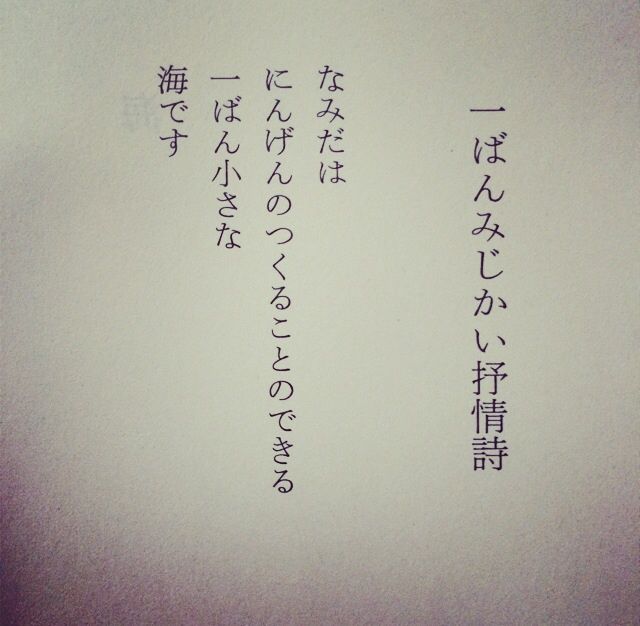 一ばんみじかい抒情詩
なみだは
にんげんのつくることのできる
一ばん小さな
海です